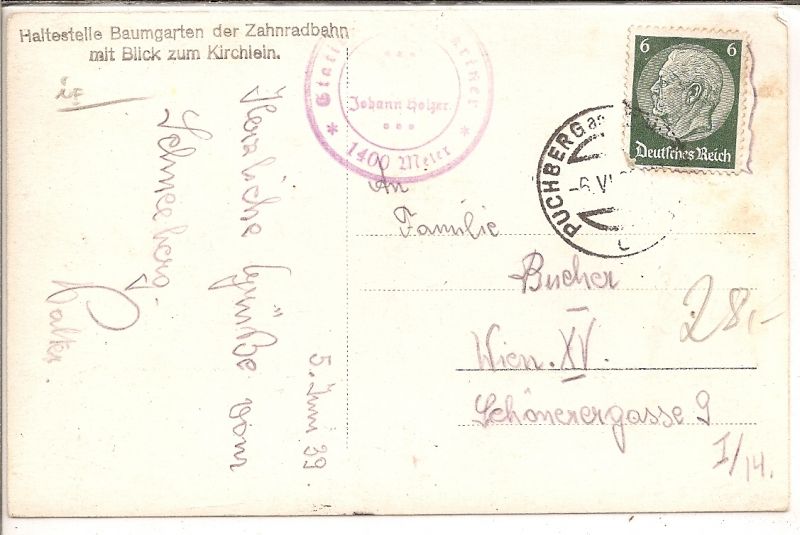 Haltestelle Baumgarten der Zahnradbahn
mit Blick zum Kirchlein.
Herzliche Grüße vom
Schneeberg.
Walter.
5. Juni 39.
Johann Holzer.
* 1400 Meter *
PUCHBERG am
-6.VI
6 6
Deutsches Reich
An
Familie
Bucher
Wien. XV.
Schönerergasse 9
I/14.
28.-